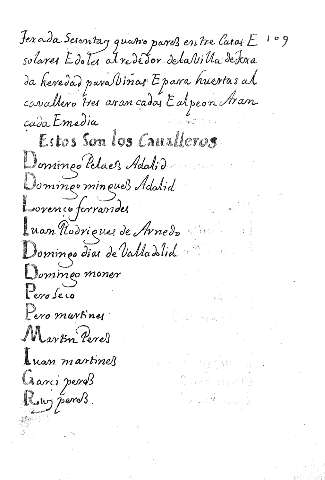 ferada Sesenta y quatro pares entre Casas E 109
solares E doles alrededor dela Villa defera
da heredad para Viñas E para huertas al
cavallero tres arancadas E alpeon Aran
cada E media
Estos Son los Cavalleros
Domingo Pelaes Adalid
Domingo mingues Adalid
Lorenço ferrandes
Iuan Rodrigues de Arnedo
Domingo dias de Valladolid
Domingo moner
Pero Seco
Pero martines
Martin Peres
Iuan martines
Garci peres
Ruy peres